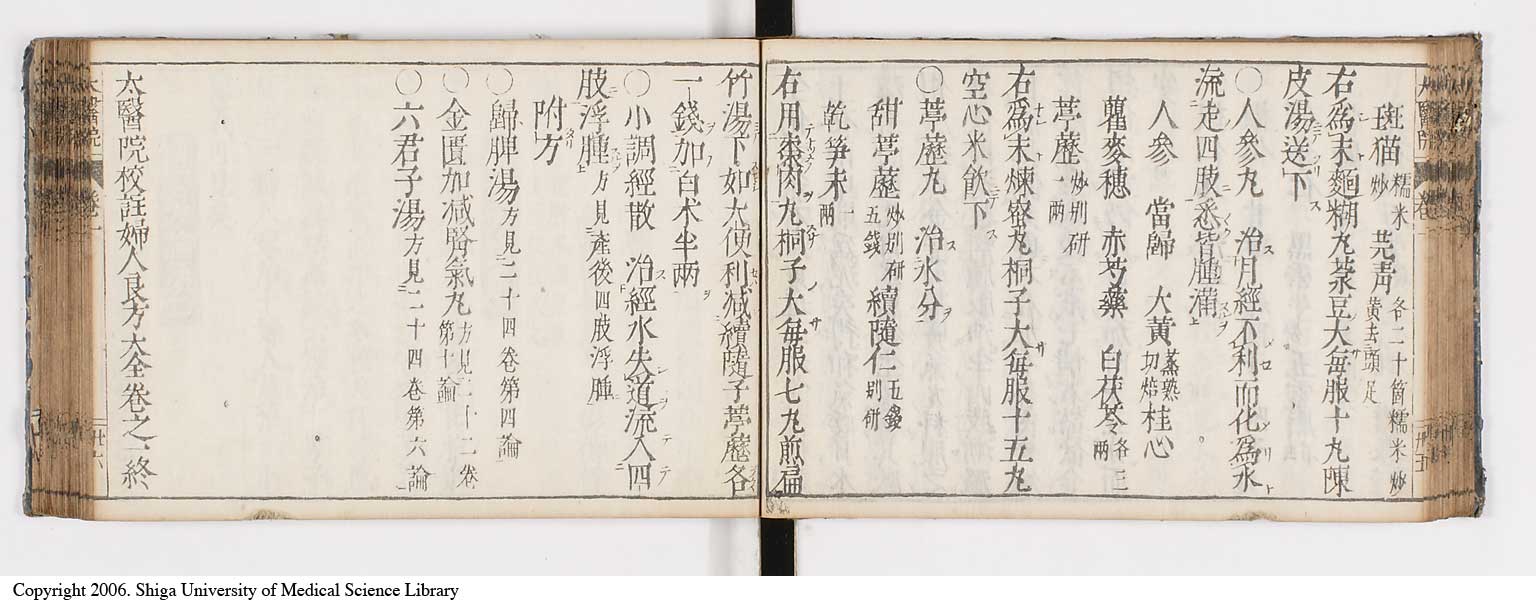 斑猫糯米炒 芫青各二十箇糯米炒黃去頭足
右爲末麵糊丸菉豆大每服十丸陳
皮湯送下
〇人參丸 治月經不利而化爲水
流走四肢悉皆腫滿
人參 當歸 大黃蒸熟切焙 桂心
瞿麥穗 赤芍藥 白茯苓各三兩
葶藶一兩炒別研
右爲末煉蜜丸桐子大每服十五丸
空心米飲下
〇葶藶丸 治水分
甜葶藶炒別研五錢 續隨仁五錢別研
乾笋末一兩
右用棗肉丸桐子大每服七丸煎扁
竹湯下如大便利減續隨子葶藶各
一錢加白术半兩
〇小調經散 治經水失道流入四
肢浮腫方見產後四肢浮腫
附方
〇歸脾湯方見二十四卷第四論
〇金匱加减腎氣丸方見二十二卷第十論
〇六君子湯方見二十四卷第六論
太醫院校註婦人良方大全卷之一終